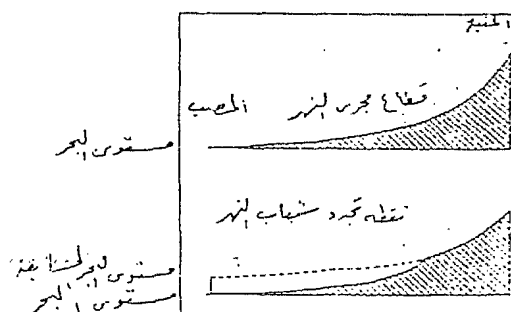 المنبع
قطاع مجرى النهر
المصب
مستوى البحر
نقطة تجدد شباب النهر
مستوى البحر السابق
مستوى البحر